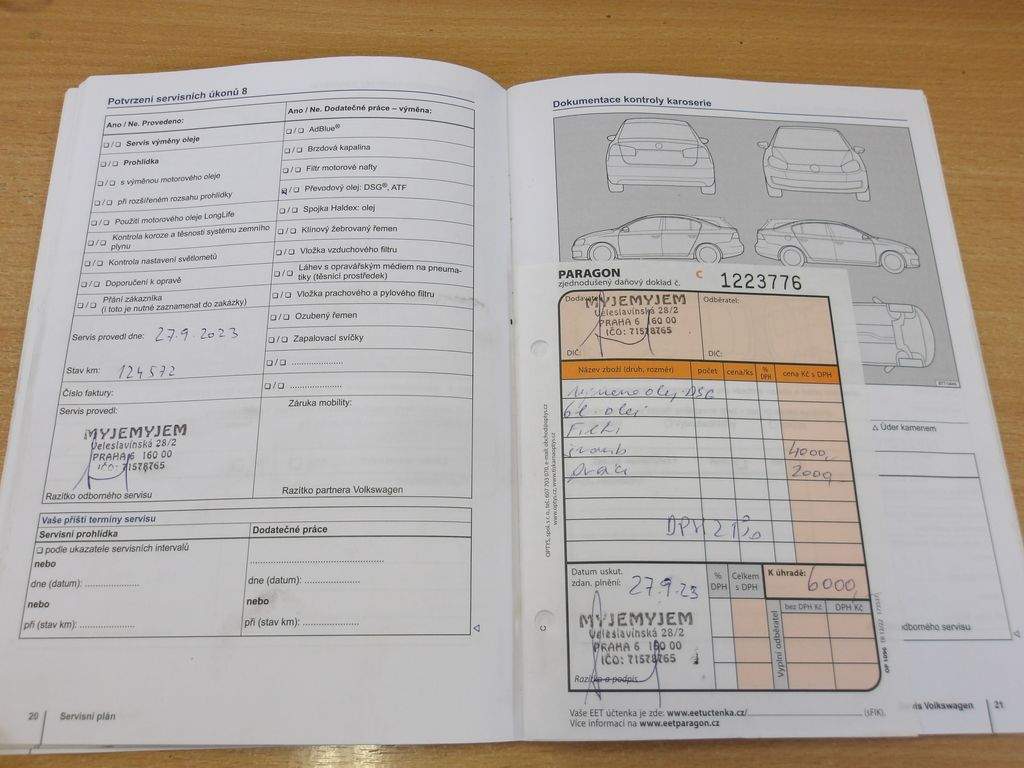 Potvrzení servisních úkonů 8
Ano / Ne. Provedeno:
❑ / ❑ Servis výměny oleje
❑ / ❑ Prohlídka
❑ / ❑ s výměnou motorového oleje
❑ / ❑ při rozšířeném rozsahu prohlídky
❑ / ❑ Použití motorového oleje LongLife
❑ / ❑ Kontrola koroze a těsnosti systému zemního
plynu
❑ / ❑ Kontrola nastavení světlometů
❑ / ❑ Doporučení k opravě
❑ / ❑ Přání zákazníka
(i toto je nutné zaznamenat do zakázky)
Servis provedl dne: 27.9.2023
Stav km: 124572
Číslo faktury:
Servis provedl:
MYJEMYJEM
Veleslavínská 28/2
PRAHA 6 160 00
IČO: 71578765
Razítko odborného servisu
Ano / Ne. Dodatečné práce – výměna:
❑ / ❑ AdBlue®
❑ / ❑ Brzdová kapalina
❑ / ❑ Filtr motorové nafty
❑ / ❑ Převodový olej: DSG®, ATF
❑ / ❑ Spojka Haldex: olej
❑ / ❑ Klínový žebrovaný řemen
❑ / ❑ Vložka vzduchového filtru
❑ / ❑ Láhev s opravářským médiem na pneuma-
tiky (těsnící prostředek)
❑ / ❑ Vložka prachového a pylového filtru
❑ / ❑ Ozubený řemen
❑ / ❑ Zapalovací svíčky
❑ / ❑ ......................
❑ / ❑ ......................
Záruka mobility:
Razítko partnera Volkswagen
Vaše příští termíny servisu
Servisní prohlídka
❑ podle ukazatele servisních intervalů
nebo
dne (datum): ......................
nebo
při (stav km): ......................
Dodatečné práce
......................................................
dne (datum): ......................
nebo
při (stav km): ......................
20 Servisní plán
Dokumentace kontroly karoserie
△ Úder kamenem
odborného servisu
is Volkswagen 21
PARAGON C 1223776
zjednodušený daňový doklad č.
Dodavatel:
MYJEMYJEM
Veleslavínská 28/2
PRAHA 6 160 00
IČO: 71578765
DIČ:
Odběratel:
DIČ:
Název zboží (druh, rozměr) počet cena/ks % DPH cena Kč s DPH
olej DSG
6l. olej
Filtr
šroub 4000,-
práce 2000,-
DPH 21%
Datum uskut.
zdan. plnění: 27.9.23
% DPH
Celkem s DPH
K úhradě: 6000,
bez DPH Kč DPH Kč
Vyplní odběratel
MYJEMYJEM
Veleslavínská 28/2
PRAHA 6 160 00
IČO: 71578765
Razítko a podpis
Vaše EET účtenka je zde: www.eetuctenka.cz/ (sFIK).
Více informací na www.eetparagon.cz
OP 1096